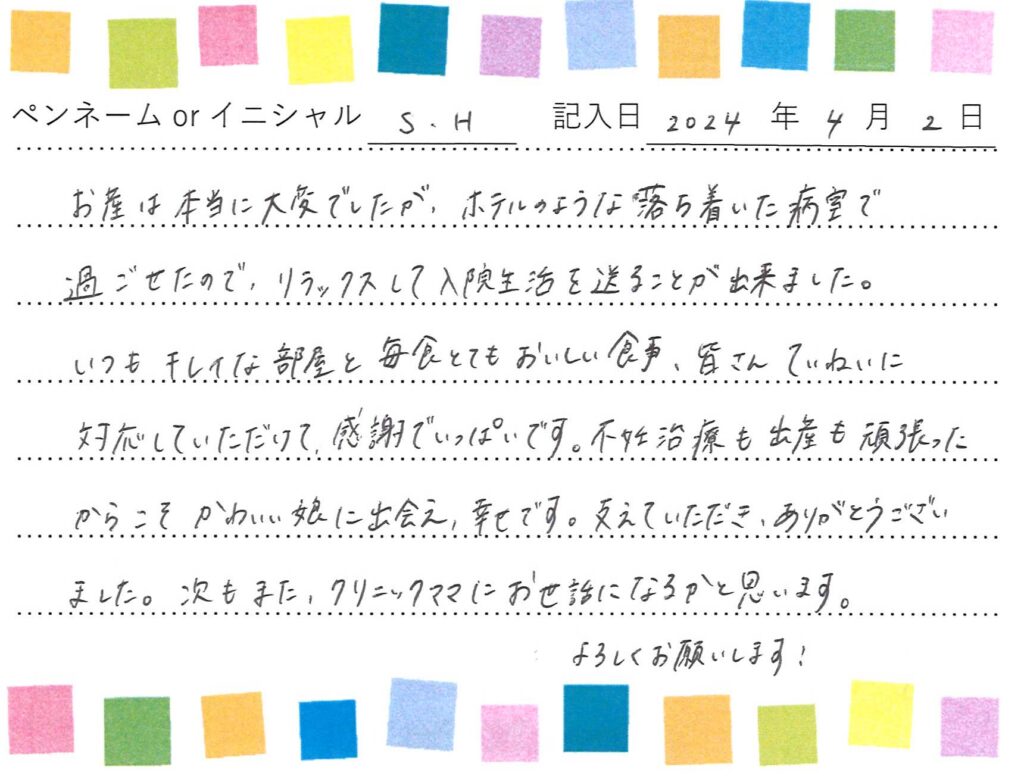 ペンネーム or イニシャル S.H 記入日 2024 年 4 月 2 日
お産は本当に大変でしたが、ホテルのような落ち着いた病室で
過ごせたので、リラックスして入院生活を送ることが出来ました。
いつもキレイな部屋と毎食とてもおいしい食事、皆さんていねいに
対応していただけて、感謝でいっぱいです。不妊治療も出産も頑張った
からこそかわいい娘に出会え、幸せです。支えていただき、ありがとうござい
ました。次もまた、クリニックママにお世話になるかと思います。
よろしくお願いします!